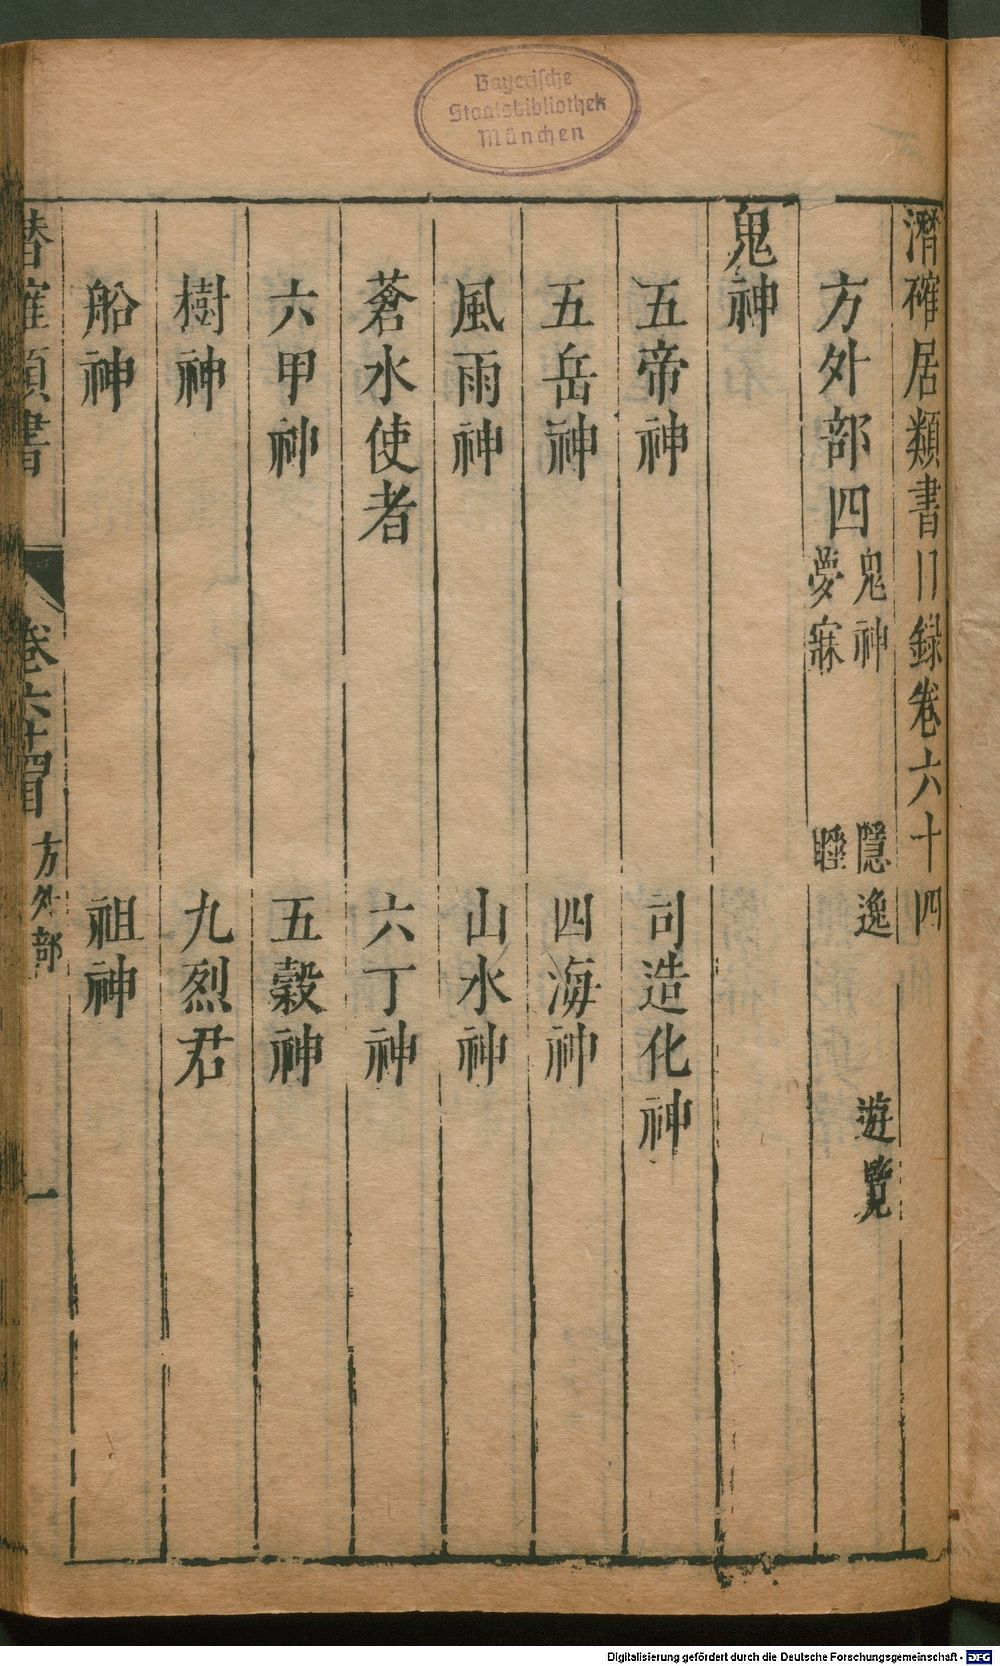 Bayerische
Staatsbibliothek
München
潛確居類書目録卷六十四
方外部四
鬼神 隱逸 遊覽
夢寐 睡
鬼神
五帝神 司造化神
五岳神 四海神
風雨神 山水神
蒼水使者 六丁神
六甲神 五穀神
樹神 九烈君
船神 祖神
潛確類書 卷六十四目 方外部 一
Digitalisierung gefördert durch die Deutsche Forschungsgemeinschaft - DFG